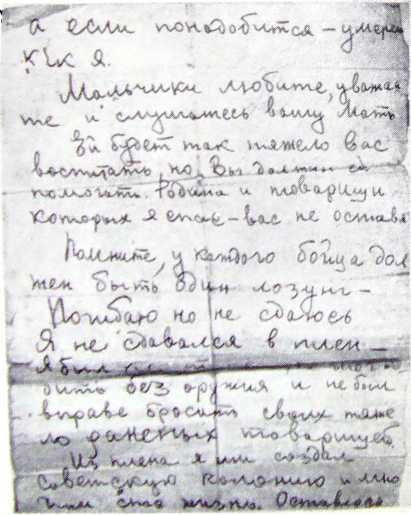 а если понадобится – умереть
как я.
Мальчики любите, уважай
те и слушайтесь вашу Мать
Ей будет так тяжело вас
воспитать, но Вы должны ей
помогать. Родина и товарищи
которых я спас – вас не оставят
Помните, у каждого бойца дол
жен быть один лозунг –
Погибаю но не сдаюсь
Я не сдавался в плен –
я был
бить без оружия и не был
вправе бросать своих тяже
ло раненых товарищей.
Из плена я создал
советскую колонию и мно
гим спас жизнь. Оставлено